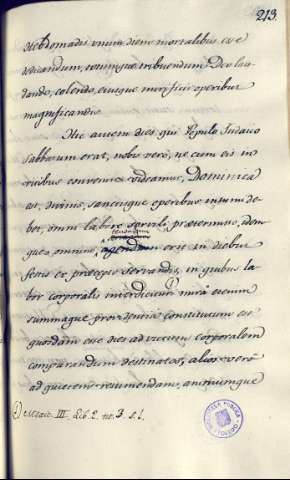 213.
Hebdomadis unum diem mortalibus esse
dedicandum, eumque tribuendum Deo lau-
dando, colendo, ejusque mirificis operibus
magnificandis.
Hic autem dies qui Populo Judaico
Sabbatum erat, nobis vero, ne cum eis in
ritibus convenire videamur, Dominica
est, divinis, sanctisque operibus insumi de-
bet, omni labore servili prætermisso, idem-
que omnino erit in diebus
festis ex præcepto servandis, in quibus la-
bor corporalis interdicitur mira etenim
summaque providentia constitutum est
quosdam esse dies ad victum corporalem
comparandum destinatos, alios vero
ad quietem resumendam, animumque
Mexic. III. Lib. 2. tit. 3. §. 1.
BIBLIOTECA PUBLICA
TOLEDO